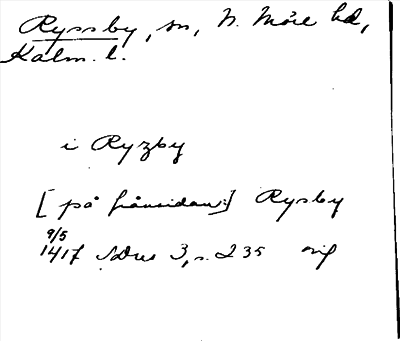 Ryssby, sn, N. Möre hd,
Kalm. l.
i Ryzby
[på frånsidan:] Rysby
9/5
1417 SDns 3, s. 235 orig